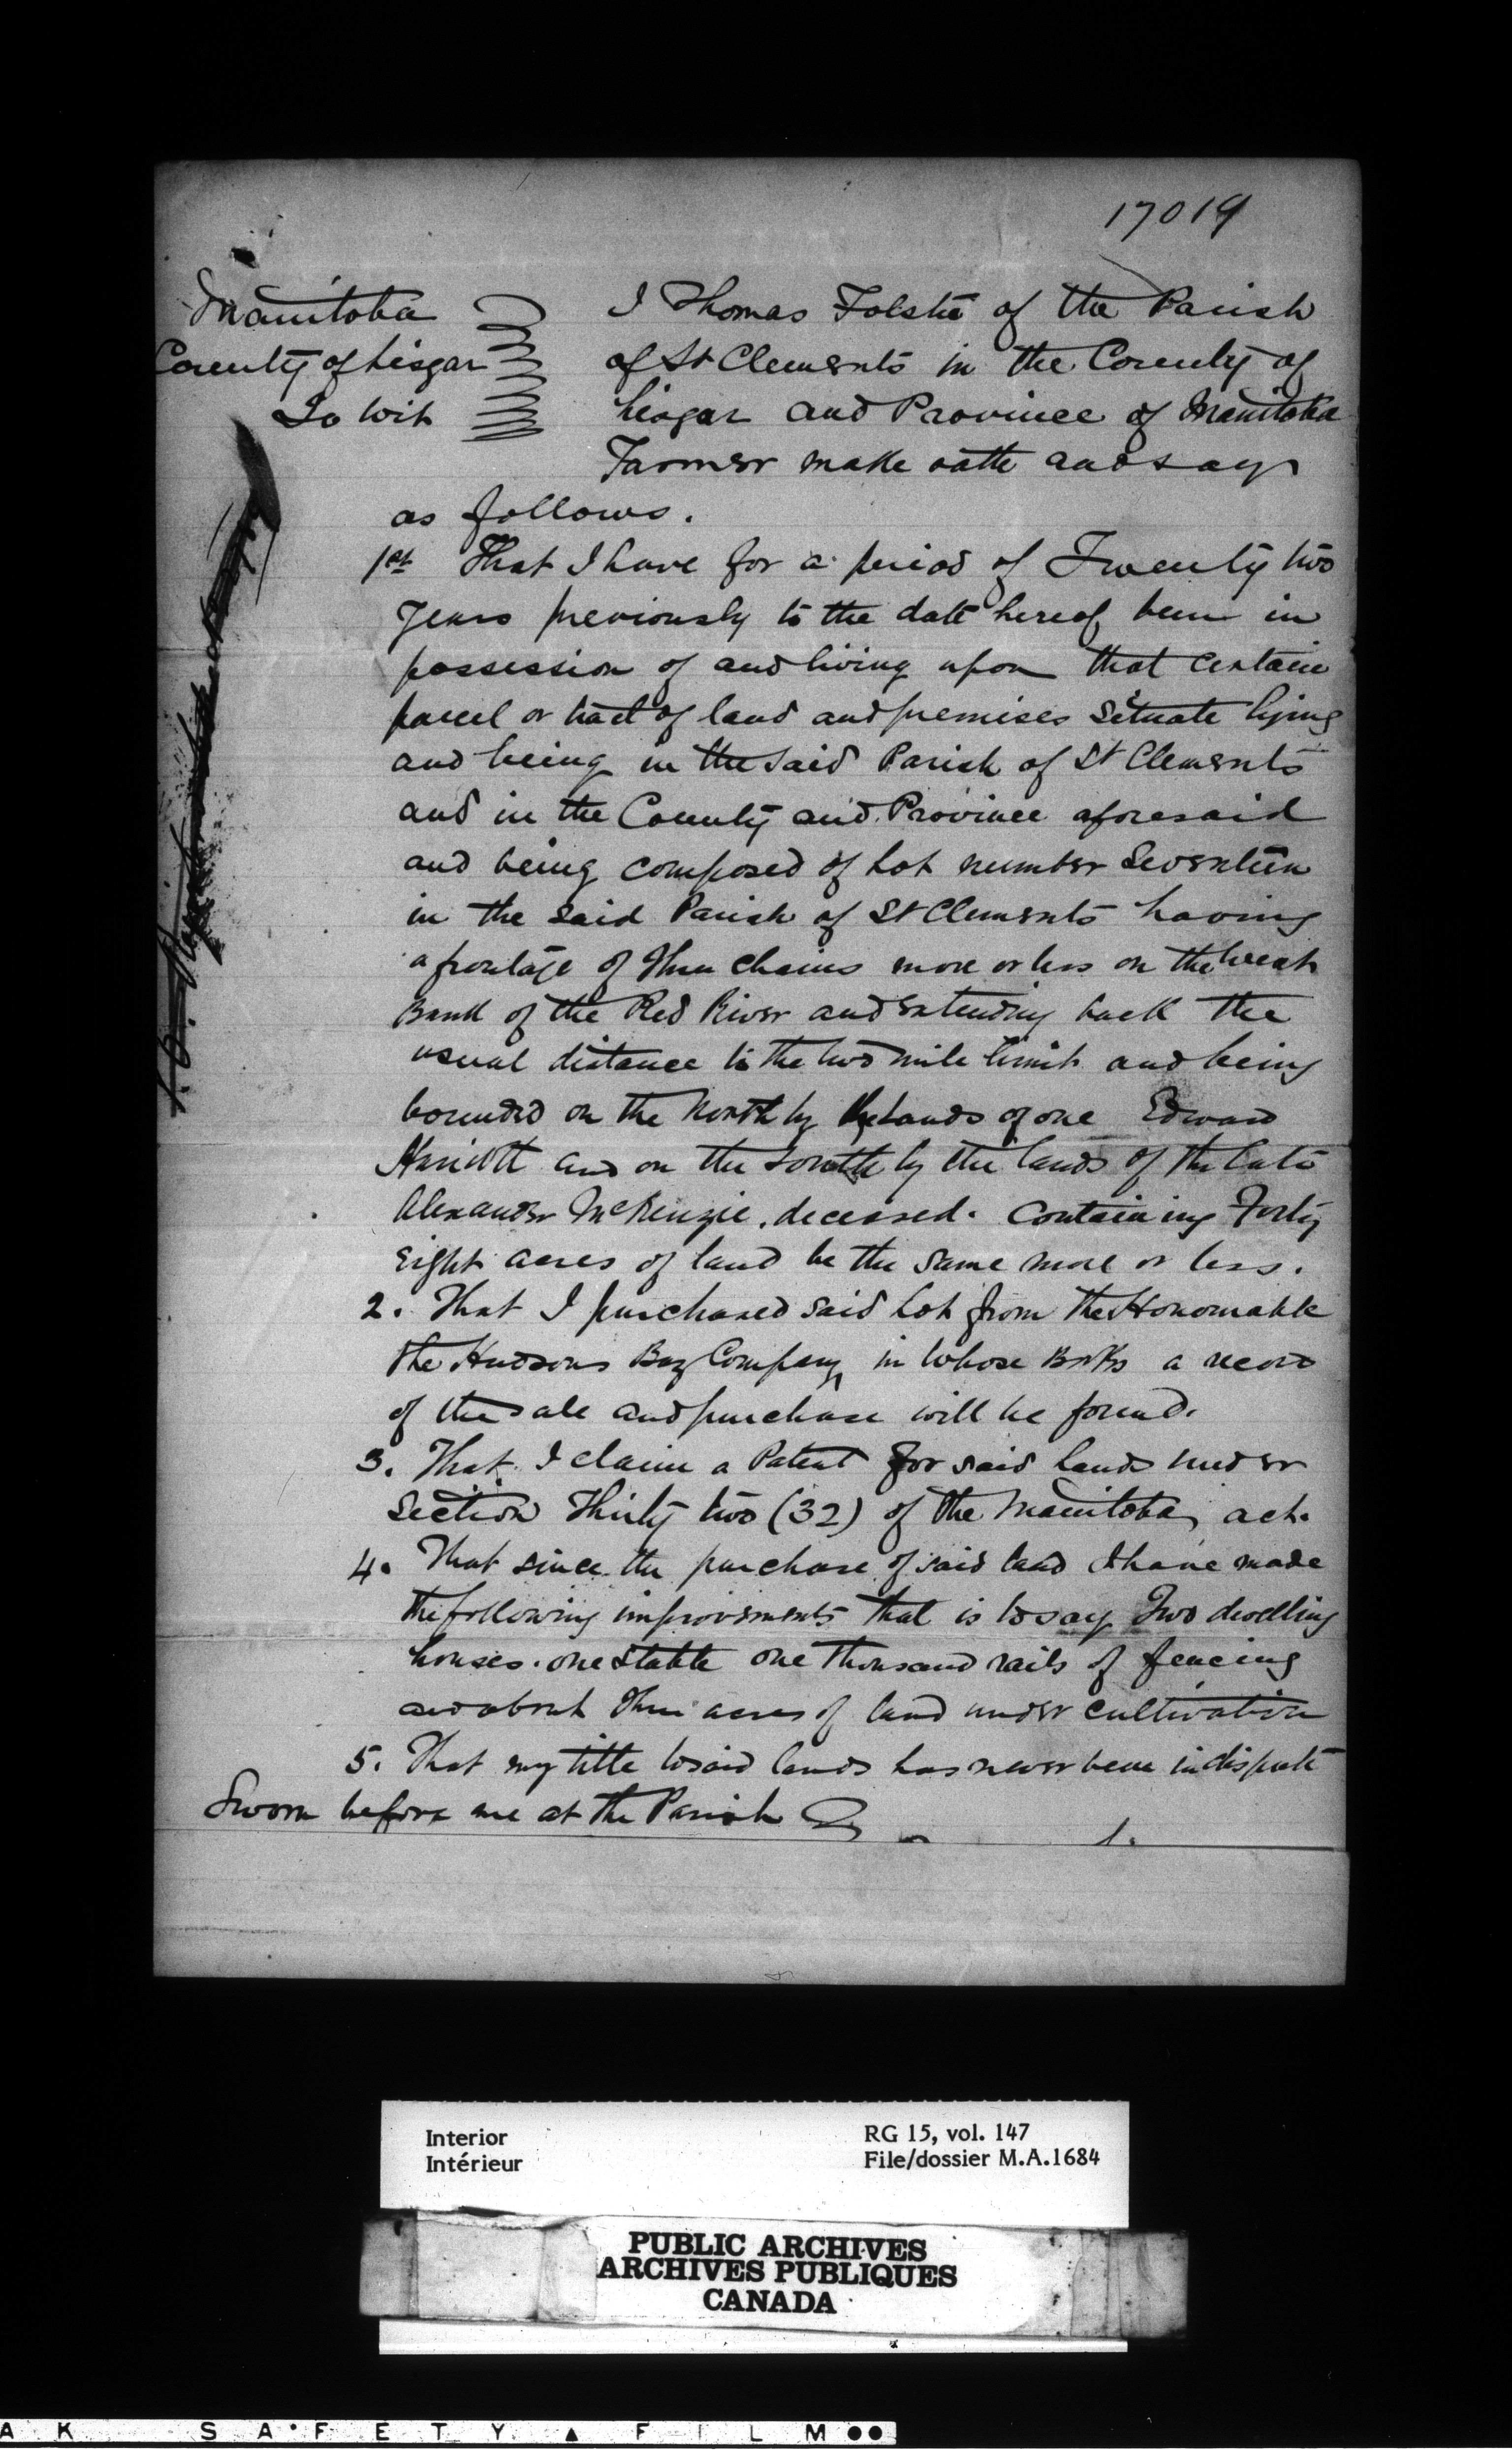 17019
Manitoba
County of Lisgar
To Wit
I Thomas Folstie of the Parish
of St Clements in the County of
Lisgar and Province of Manitoba
Farmer make oath and say
as follows.
1st That I have for a period of Twenty two
years previously to the date hereof been in
possession of and living upon that certain
parcel or tract of land and premises situate lying
and being in the said Parish of St Clements
and in the County and Province aforesaid
and being composed of Lot number Seventeen
in the said Parish of St Clements having
a frontage of Three chains more or less on the West
Bank of the Red River and extending back the
usual distance to the two mile limit and being
bounded on the North by the Lands of one Edward
Harriott and on the South by the lands of the late
Alexander McKenzie, deceased. Containing Forty
eight acres of land be the same more or less.
2. That I purchased said Lot from the Honourable
the Hudsons Bay Company, in whose Books a record
of the sale and purchase will be found.
3. That I claim a Patent for said lands under
Section Thirty two (32) of the Manitoba act.
4. That since the purchase of said land I have made
the following improvements that is to say Two dwelling
houses. one stable one thousand rails of fencing
and about three acres of land under cultivation
5. That my title to said lands has never been in dispute
Sworn before me at the Parish
Interior
Intérieur
RG 15, vol. 147
File/dossier M.A.1684
PUBLIC ARCHIVES
ARCHIVES PUBLIQUES
CANADA
A K SAFETY ▲ FILM ●●